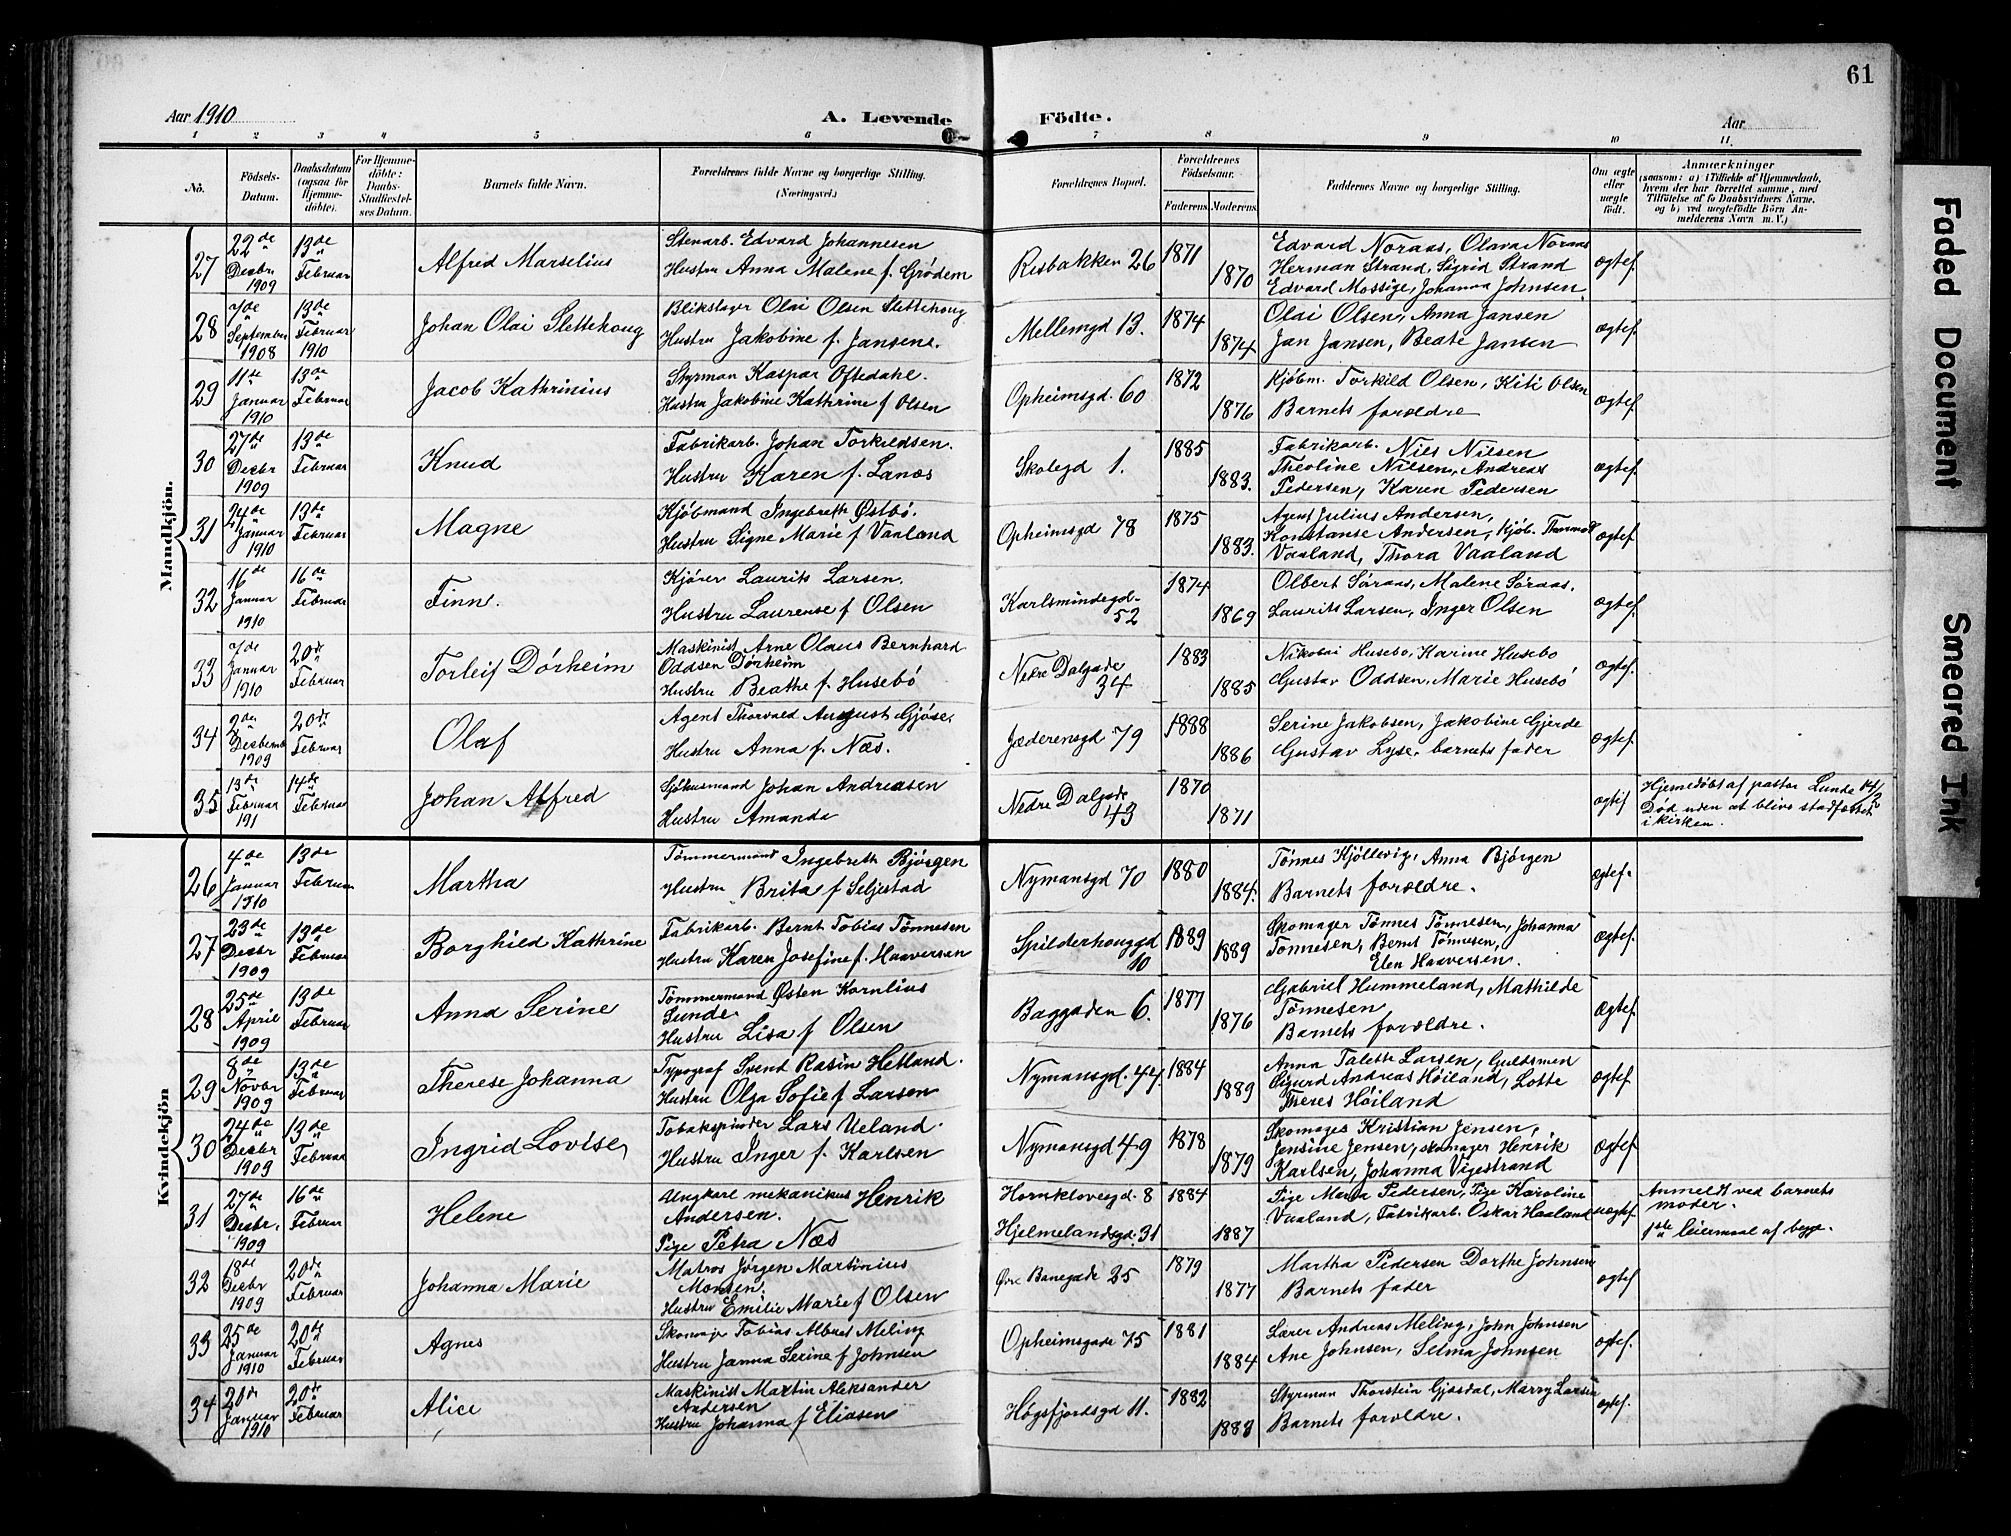 61
Aar 1910
A. Levende Födte.
Aar
1 2 3 4 5 6 7 8 9 10 11.
No.
Födsels-Datum.
Daabsdatum (ogsaa for Hjemmedöbte).
For Hjemmedöbte: Daabs-Stadfæstelses Datum.
Barnets fulde Navn.
Forældrenes fulde Navne og borgerlige Stilling. (Næringsvei.)
Forældrenes Bopæl.
Forældrenes Födselsaar.
Faderens. Moderens.
Faddernes Navne og borgerlige Stilling.
Om ægte eller uægte födt.
Anmærkninger
(saasom: a) i Tilfælde af Hjemmedaab, hvem der har forrettet samme, med Tilföielse af to Daabsvidners Navne, og b) ved uægtefödte Börn Anmelderens Navn m. V.)
Mandkjön.
27 22de Desbr. 1909 13de Februar Alfred Marselius Stenarb. Edvard Johannesen Risbakken 26 1871 Edvard Noraas, Olava Noraas ægtef.
Hustru Anna Malene f. Grödem 1870 Herman Strand, Sigrid Strand
Edvard Mossige, Johanna Johnsen.
28 7de September 1908 13de Februar 1910 Johan Olai Slettehoug Blikslager Olai Olsen Slettehoug Mellemgd 13. 1874 Olai Olsen, Anna Jansen ægtef.
Hustru Jakobine f. Jansens. 1874 Jan Jansen, Beate Jansen
29 11te Januar 1910 13de Februar Jacob Kathrinius Styrman Kaspar Oftedahl. Opheimsgd. 60 1872 Kjöbm. Torkild Olsen, Kiti Olsen ægtef.
Hustru Jakobine Kathrine f Olsen 1876 Barnets forældre
30 27de Desbr 1909 13de Februar Knud Fabrikarb. Johan Torkildsen. Skolegd 1. 1885 Fabrikarb. Nils Nilsen ægtef.
Hustru Karen f. Lanæs 1883. Theoline Nilsen, Andreas
Pedersen, Karen Pedersen
31 24de Januar 1910 13de Februar Magne Kjöbmand Ingebreth Østbö. Opheimsgd 78 1875 Agent Julius Andersen, ægtef.
Hustru Signe Marie f Vaaland 1883. Konstanse Andersen, Kjöb.
Vaaland, Thora Vaaland
32 16de Januar 1910 16de Februar Finn. Kjörer Laurits Larsen. Karlsmindegd. 52 1874 Olbert Söraas, Malene Söraas. ægtef.
Hustru Laurense f Olsen 1869 Laurits Larsen, Inger Olsen
33 7de Januar 1910 20de Februar Torleif Dörheim Maskinist Arne Olaus Bernhard Nedre Dalgade 34 1883 Nikolai Husebö, Karine Husebö ægtef.
Oddsen Dörheim
Hustru Beathe f. Husebö 1885 Gustav Oddsen, Marie Husebö
34 2de Desbemb 1909 20de Februar Olaf Agent Thorvald August Gjöse. Jæderensgd 79 1888 Serine Jakobsen, Jakobine Gjerde ægtef.
Hustru Anna f. Næs. 1886 Gustav Lyse, barnets fader
35 13de Februar 191 14de Februar Johan Alfred Sjöhusmand Johan Andreasen Nedre Dalgade 43 1870 ægtef Hjemedöbt af pastor Lunde 14/2
Hustru Amanda 1871 Död uden at blive stadfæstet
i kirken.
Kvindekjön
26 4de Januar 1910 13de Februar Martha Tömmermand Ingebreth Björgen Nymansgd 70 1880 Tönnes Kjöllevig, Anna Björgen ægtef.
Hustru Brita f Seljestad 1884. Barnets forældre.
27 23de Desbr 1909 13de Februar Borghild Kathrine Fabrikarb. Bernt Tobias Tönnesen Spilderhouggd 10 1889 Skomager Tönnes Tönnesen, Johanna ægtef.
Hustru Karen Josefine f. Haaversen 1889 Tönnesen, Bernt Tönnesen,
Elen Haaversen.
28 25de April 1909 13de Februar Anna Serine Tömmermand Østen Kornlius Baggaden 6. 1877 Gabriel Hummeland, Mathilde Ægtef.
Sunde Tönnesen
Hustru Lisa f Olsen 1876 Barnets forældre.
29 8de Novbr 1909 13de Februar Therese Johanna Typograf Svend Rasin Hetland. Nymansgd. 44 1884 Anna Talette Larsen, Guldsmed ægtef.
Hustru Olga Sofie f Larsen 1889 Sigurd Andreas Höiland, Lotte
Theres Höiland
30 24de Desbr 1909 13de Februar Ingrid Lovise Tobakspinder Lars Ueland. Nymansgd 49 1878 Skomager Kristian Jensen, ægtef.
Hustru Inger f. Karlsen 1879 Jensine Jensen, skomager Henrik
Karlsen, Johanna Vigestrand
31 27de Desbr. 1909 16de Februar Helene Ungkarl mekanikus Henrik Hornklovesgd. 8 1884 Pige Marta Pedersen, Pige Karoline uægtef. Anmeldt ved barnets
Andersen. Vaaland, Fabrikarb. Oskar Haaland moder.
Pige Petra Næs Hjelmelandsgd. 31 1887 1ste leiermaal af begge.
32 18de Desbr 1909 20de Februar Johanna Marie Matros Jörgen Martinius Övre Banegade 25 1879 Martha Pedersen Dorthe Johnsen ægtef
Monsen.
Hustru Emilie Marie f Olsen 1877 Barnets fader
33 25de Januar 1910 20de Februar Agnes Skomager Tobias Albert Meling Opheimsgade 75 1881 Lærer Andreas Meling, John Johnsen ægtef.
Hustru Janna Serine f Johnsen 1884 Ane Johnsen, Selma Johnsen
34 20de Januar 1910 20de Februar Alice Maskinist Martin Aleksander Högsfjordsgd 11. 1882 Styrman Thorstein Gjosdal, Marry Larsen ægtef.
Andersen
Hustru Johanna f Eliasen 1883 Barnets forældre.
Faded Document
Smeared Ink